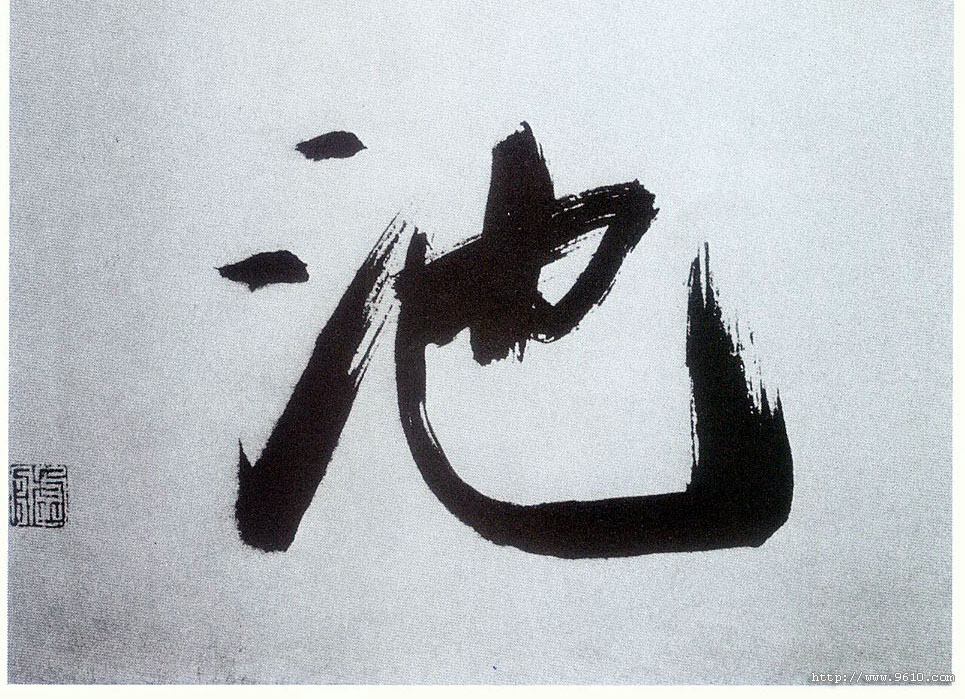 池
http://www.9610.com